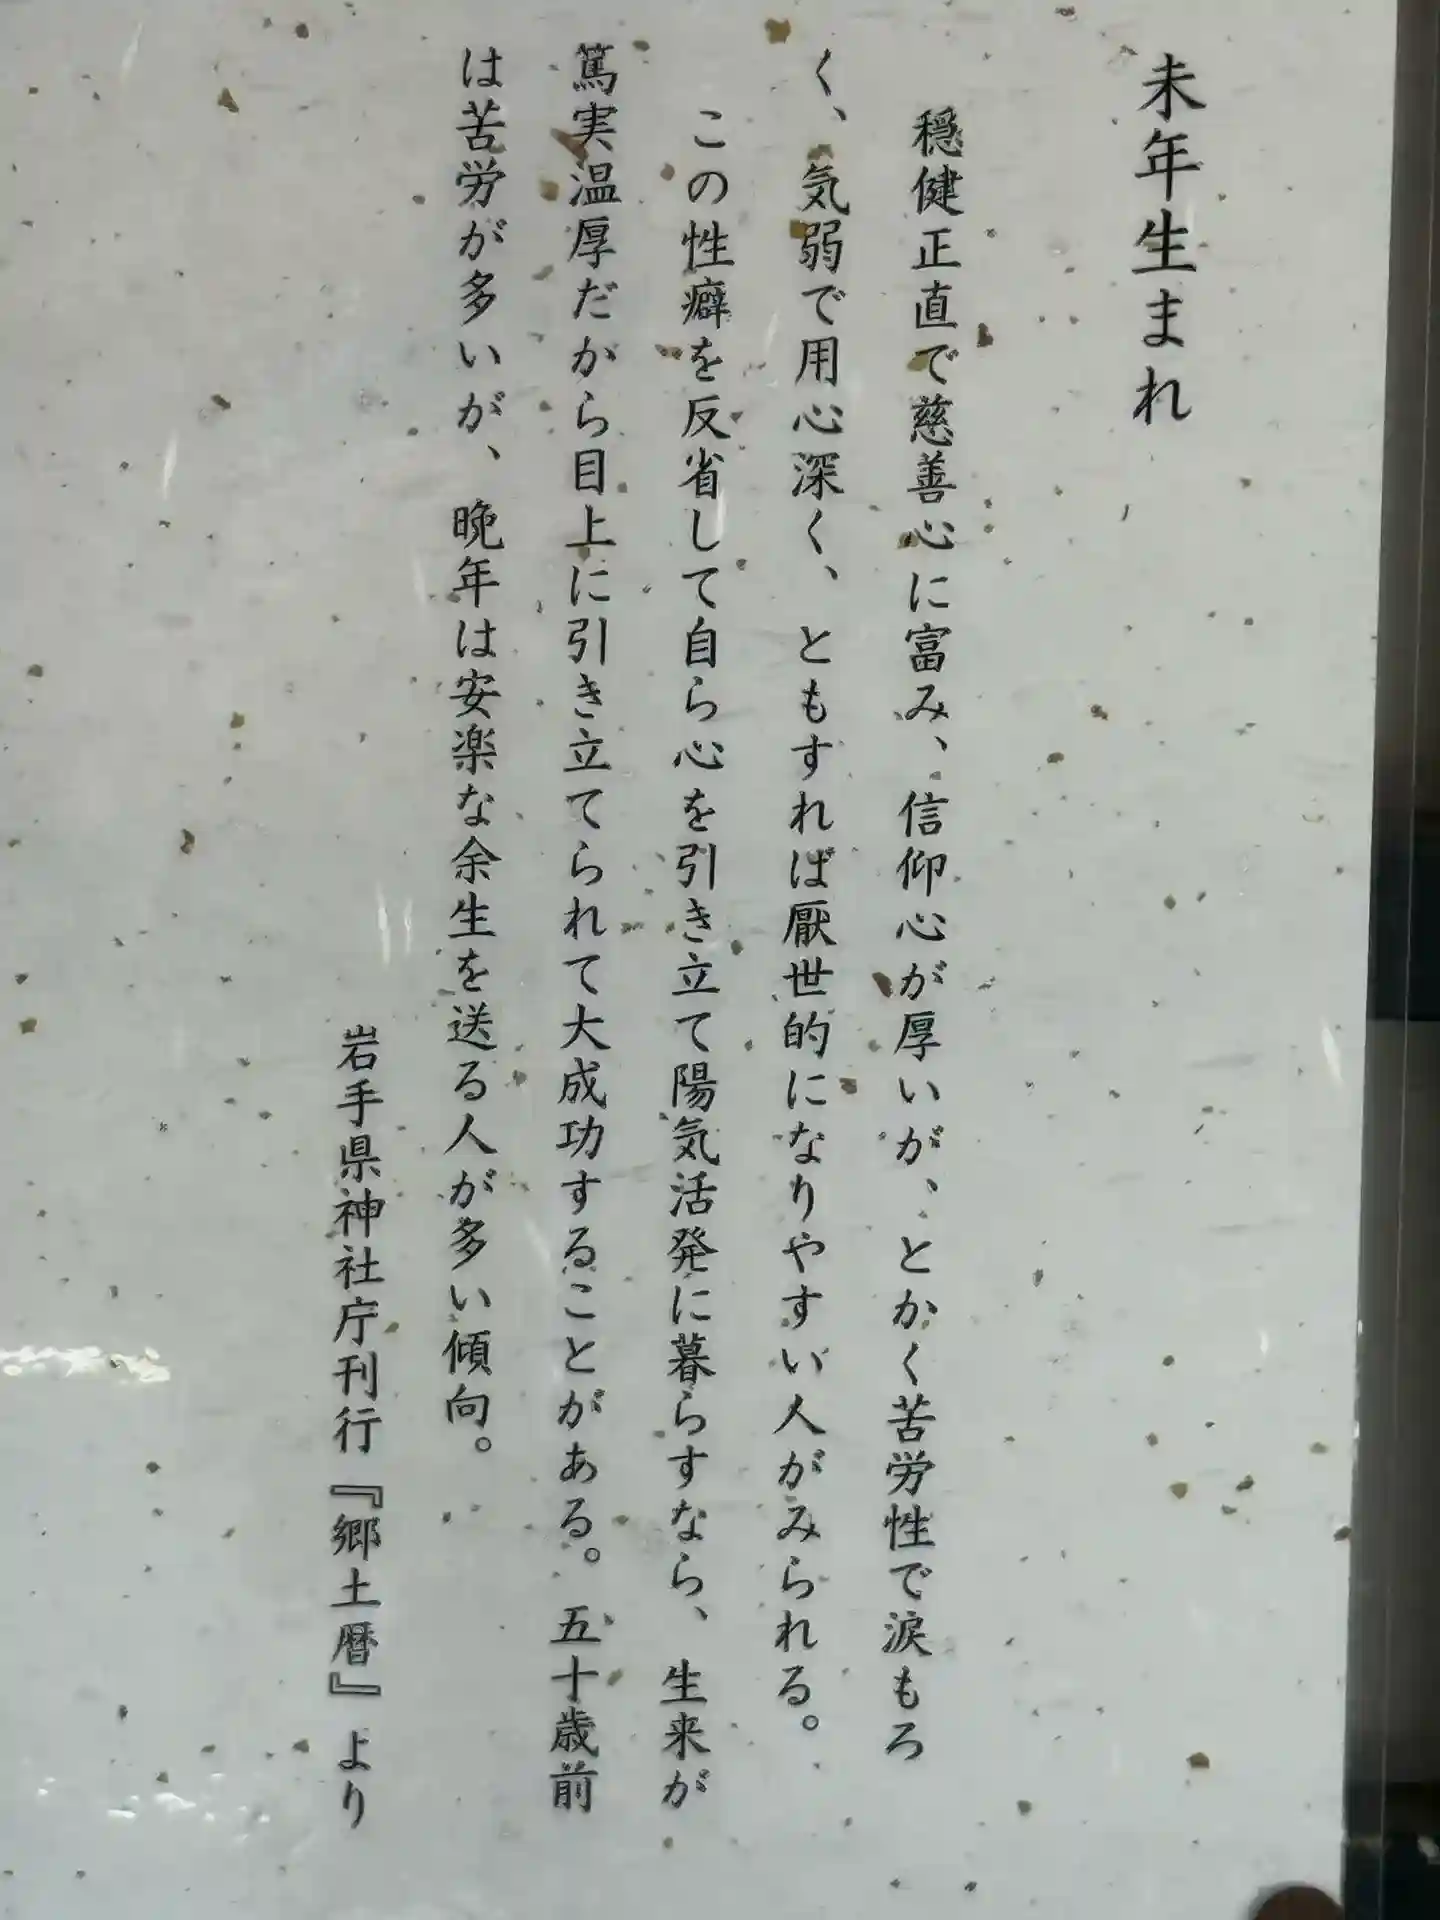 未年生まれ
穏健正直で慈善心に富み、信仰心が厚いが、とかく苦労性で涙もろ
く、気弱で用心深く、ともすれば厭世的になりやすい人がみられる。
この性癖を反省して自ら心を引き立て陽気活発に暮らすなら、生来が
篤実温厚だから目上に引き立てられて大成功することがある。五十歳前
は苦労が多いが、晩年は安楽な余生を送る人が多い傾向。
岩手県神社庁刊行『郷土暦』より